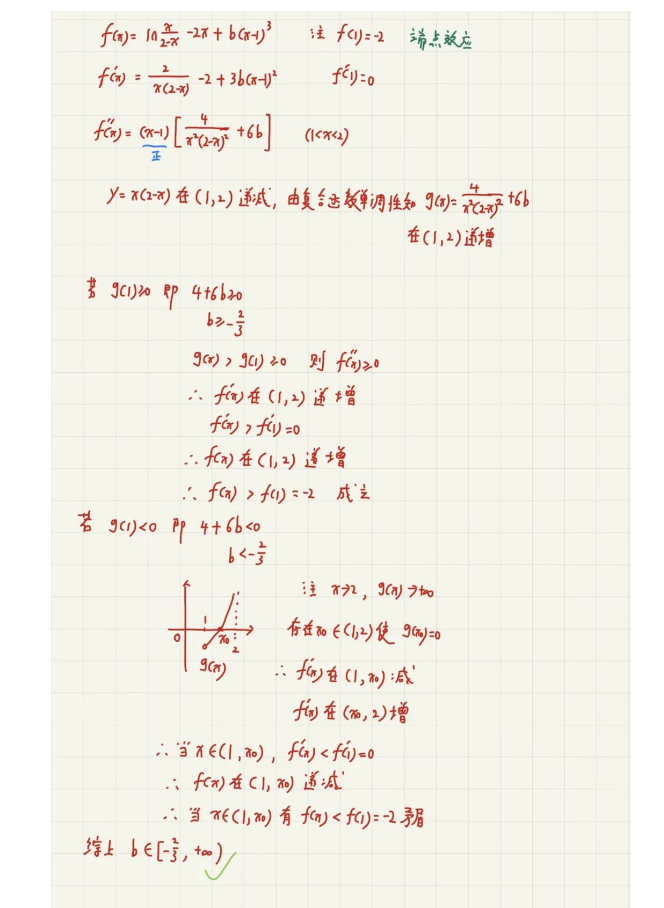 f(x) = ln x/(2-x) - 2x + b(x-1)³ 注 f(1)=-2 端点效应
f'(x) = 2/(x(2-x)) - 2 + 3b(x-1)² f'(1)=0
f''(x) = (x-1)[4/(x²(2-x)²) + 6b] (1<x<2)
正
y=x(2-x) 在(1,2)递减, 由复合函数单调性知 g(x)=4/(x²(2-x)²)+6b
在(1,2)递增
若 g(1)≥0 即 4+6b≥0
b≥-2/3
g(x)>g(1)≥0 则 f''(x)≥0
∴ f'(x)在(1,2)递增
f'(x)>f'(1)=0
∴ f(x)在(1,2)递增
∴ f(x)>f(1)=-2 成立
若 g(1)<0 即 4+6b<0
b<-2/3
注 x→2, g(x)→+∞
存在x₀∈(1,2)使 g(x₀)=0
0 1 x₀ 2
g(x)
∴ f'(x)在(1,x₀)减
f'(x)在(x₀,2)增
∴当x∈(1,x₀), f'(x)<f'(1)=0
∴ f(x)在(1,x₀)递减
∴当 x∈(1,x₀)有 f(x)<f(1)=-2 矛盾
综上 b∈[-2/3, +∞)